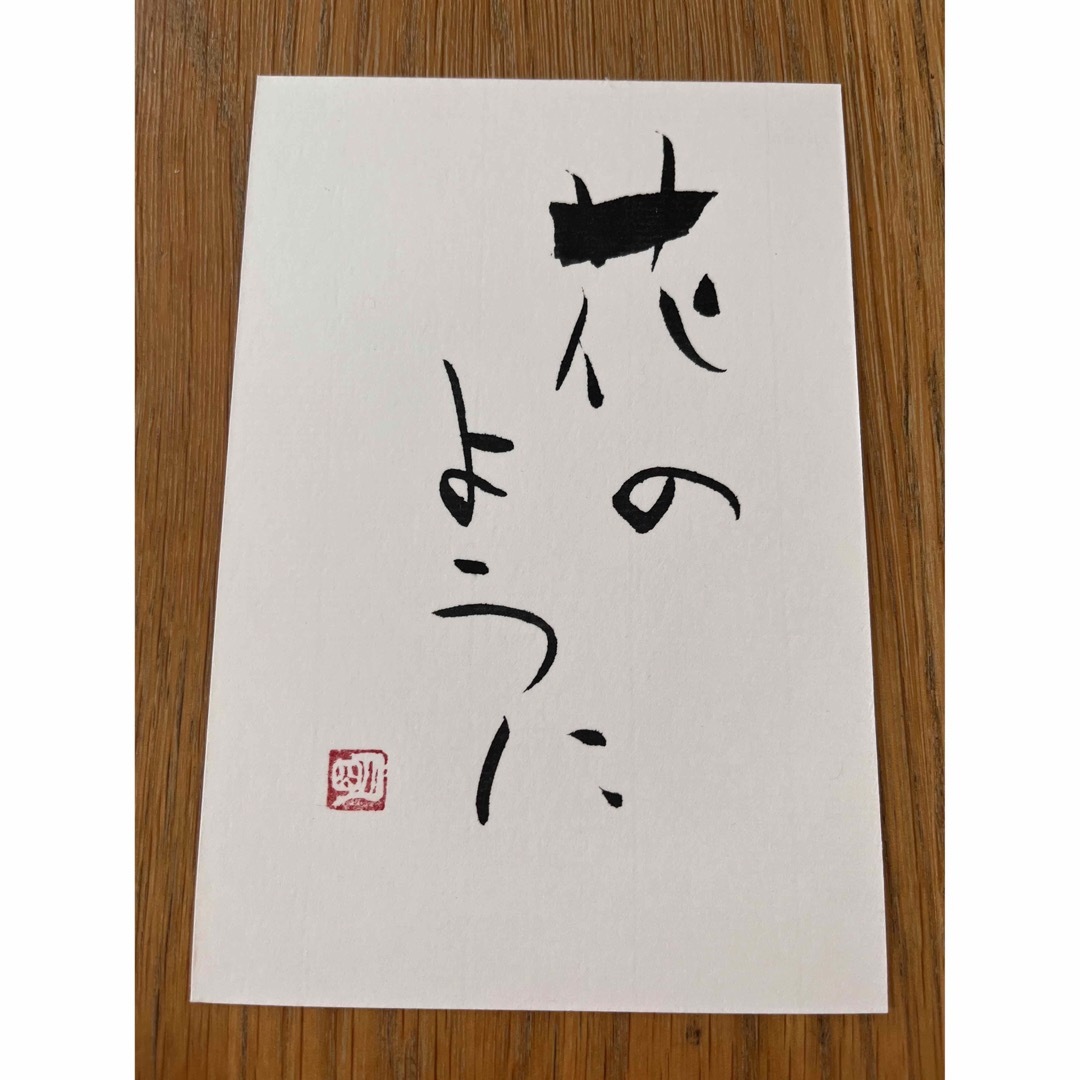 花の
ように